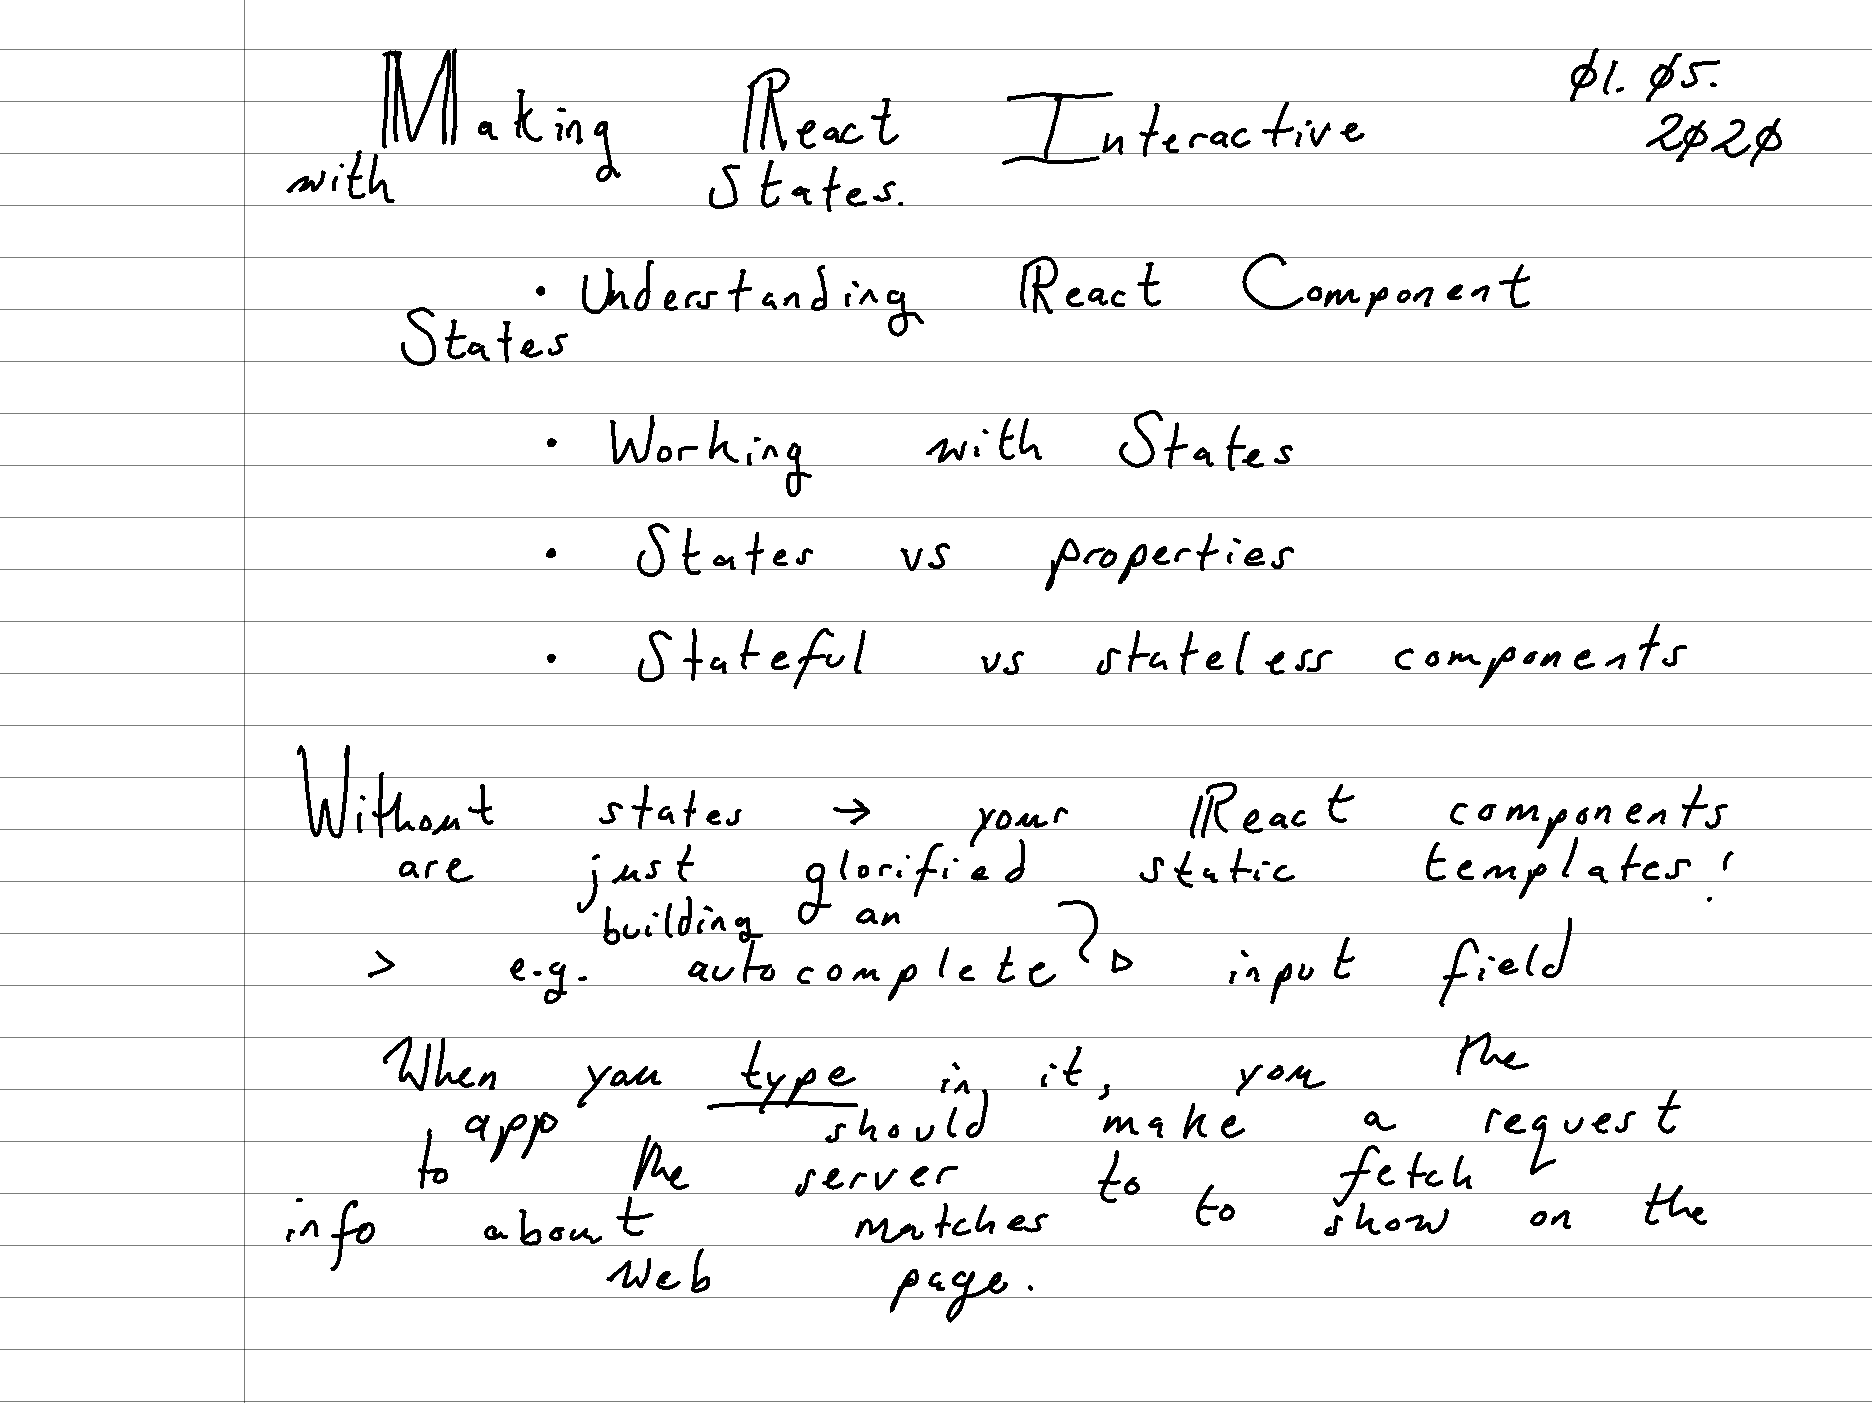 Making React Interactive
01.05.
2020
with States.
• Understanding React Component
States
• Working with States
• States vs properties
• Stateful vs stateless components
Without states → your React components
are just glorified static templates!
building an
> e.g. autocomplete input field
When you type in it, you the
app should make a request
to the server to fetch
info about matches to show on the
web page.